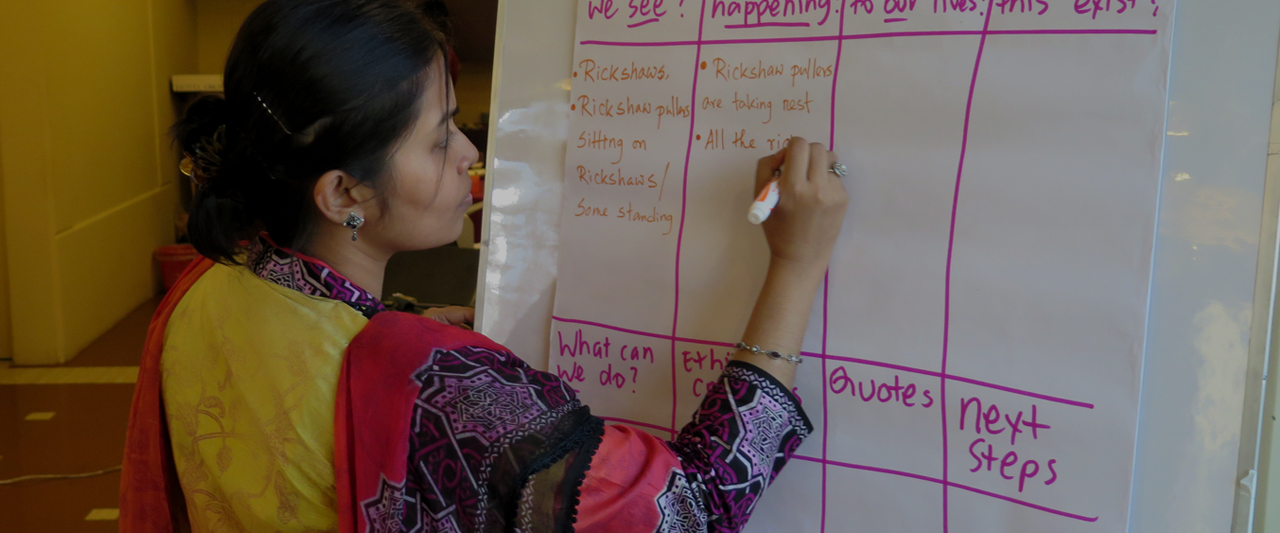 we see? happening? to our lives? this exist?
• Rickshaws.
• Rickshaw pullers
sitting on
Rickshaws/
Some standing
• Rickshaw pullers
are taking rest
• All the
What can
we do?
Quotes
next
steps